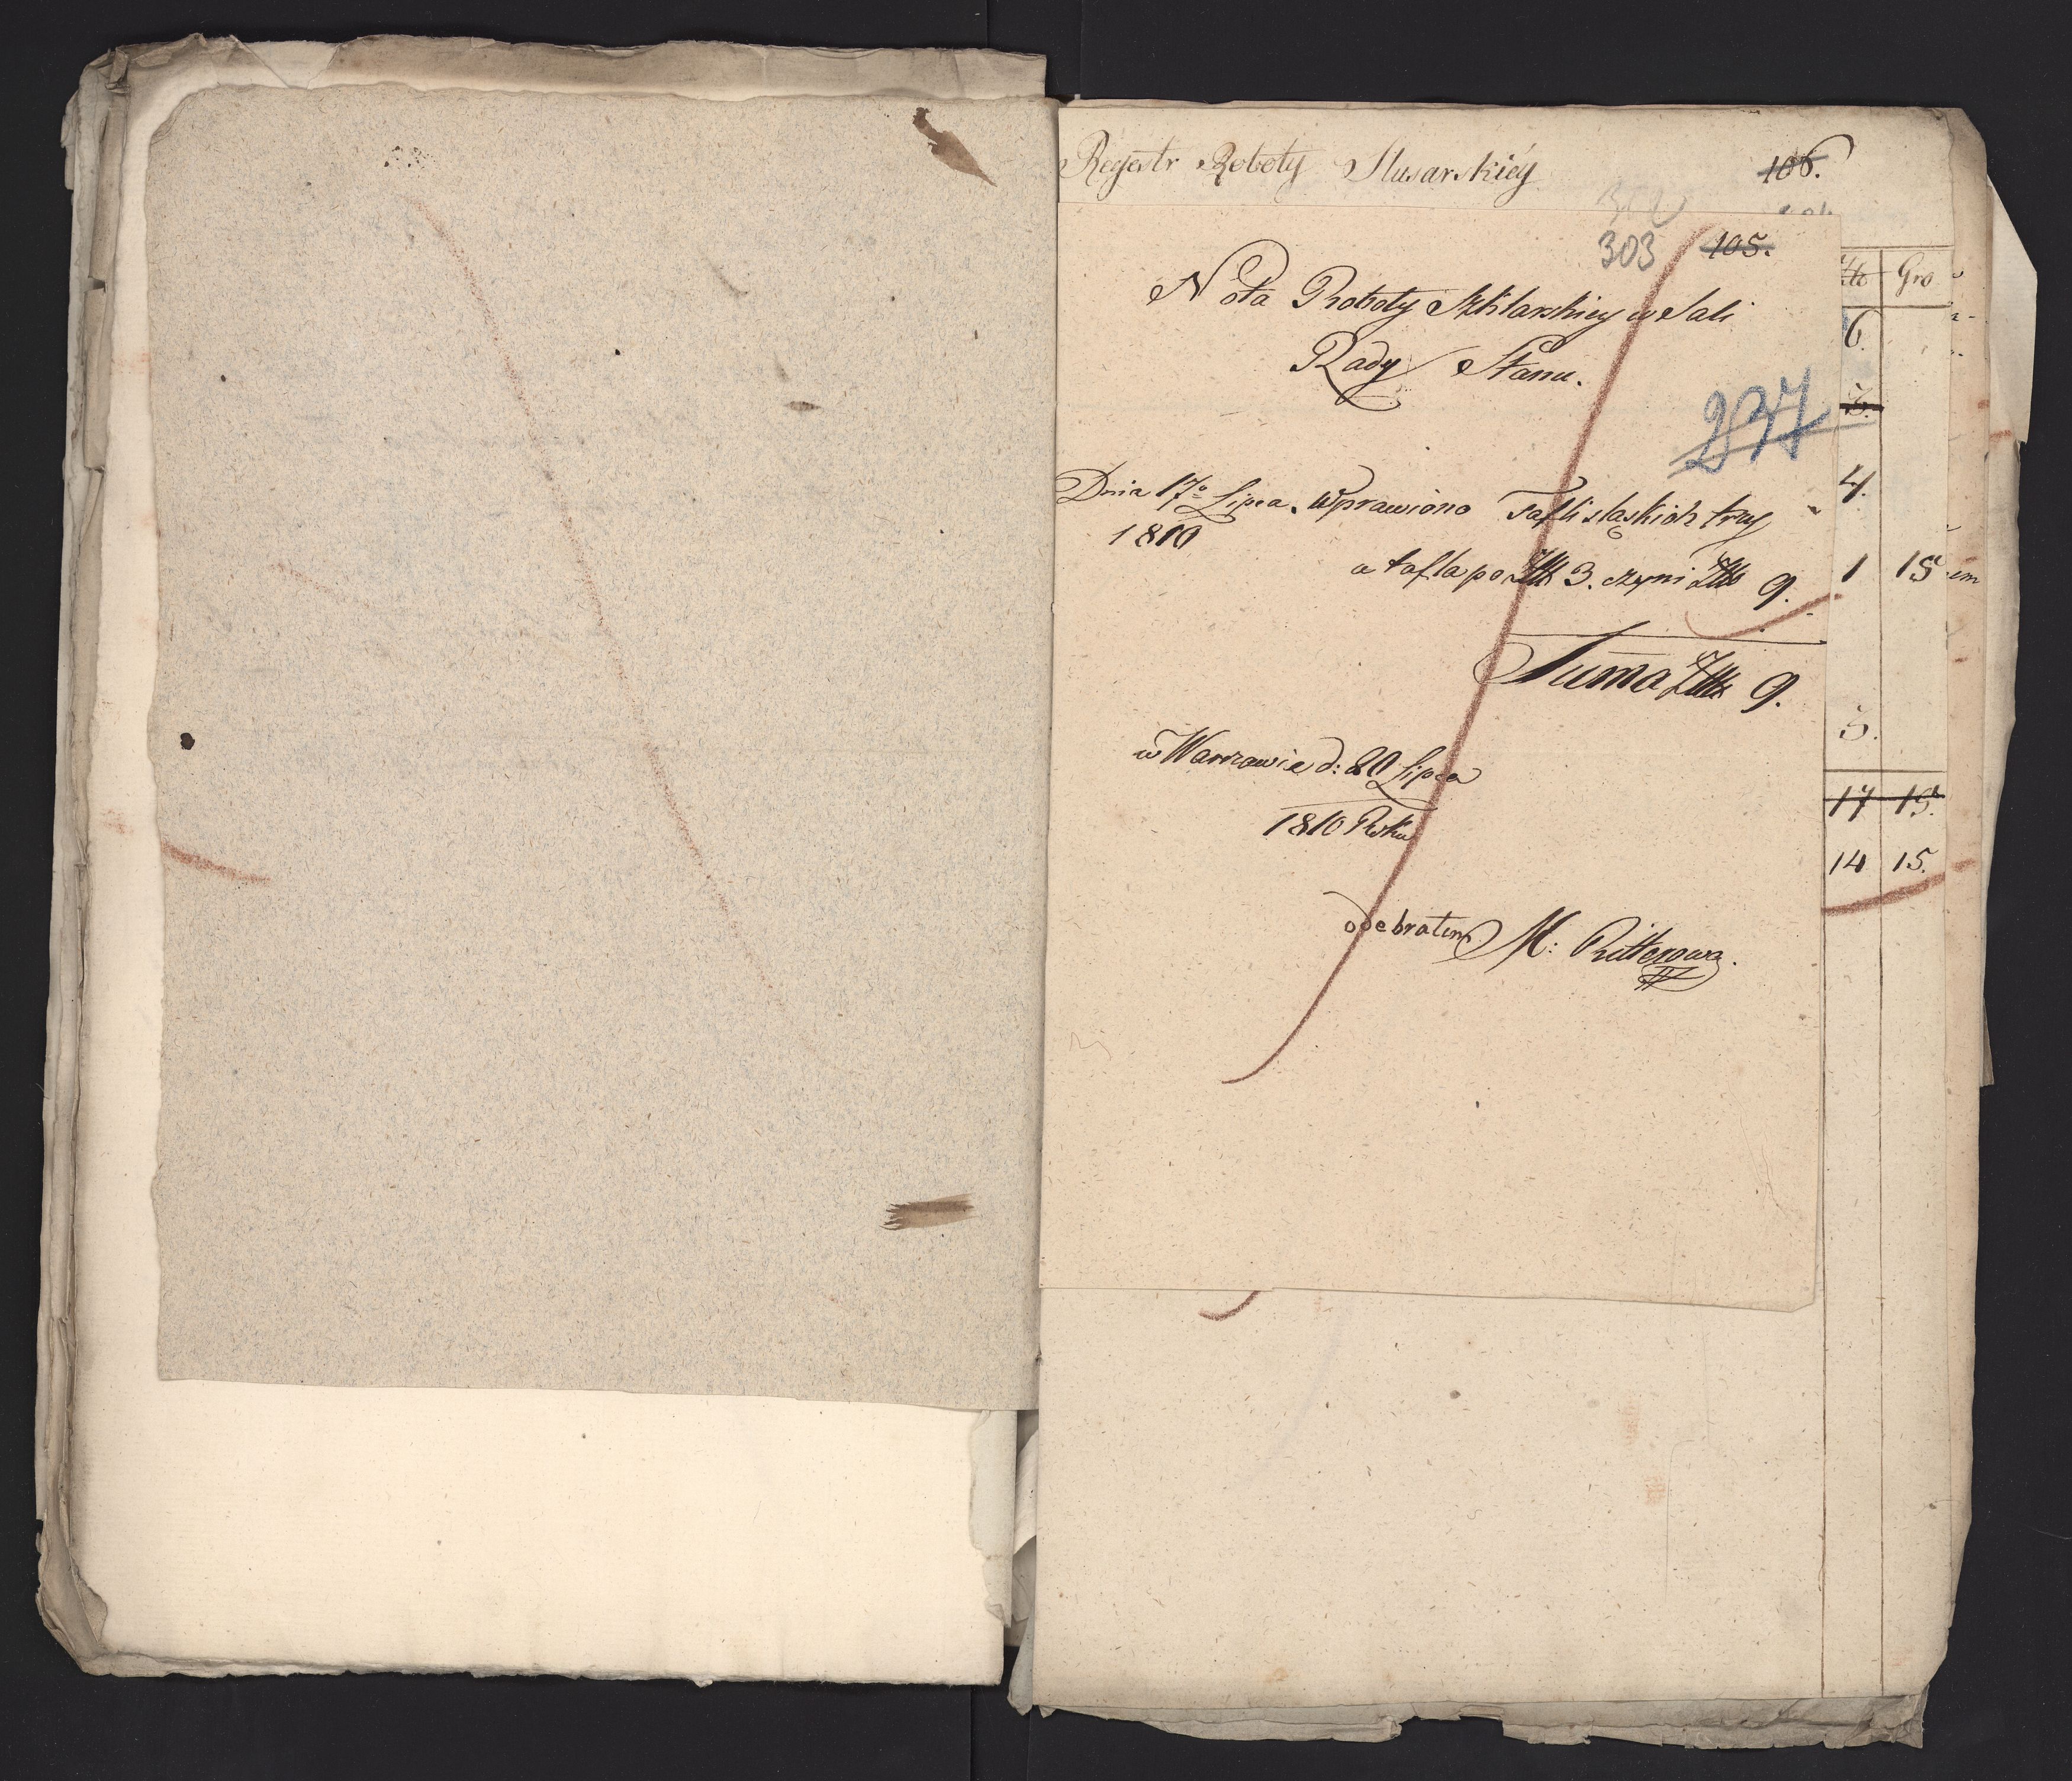 Regestr Roboty Slusarskiéy
106.
303
105.
Nota Roboty Szklarskiey w Sali
Rady Stanu.
237
Dnia 17º Lipca. Wprawiono Tafli sląskich trzy
1810
a tafla po Złł 3. czyni Złł 9.
Suma Złł 9.
w Warszawie d: 20 Lipca
1810 Roku
odebralem M: Ritterowa.
Gro
6.
5.
4.
1 15
5.
17 15.
14 15.